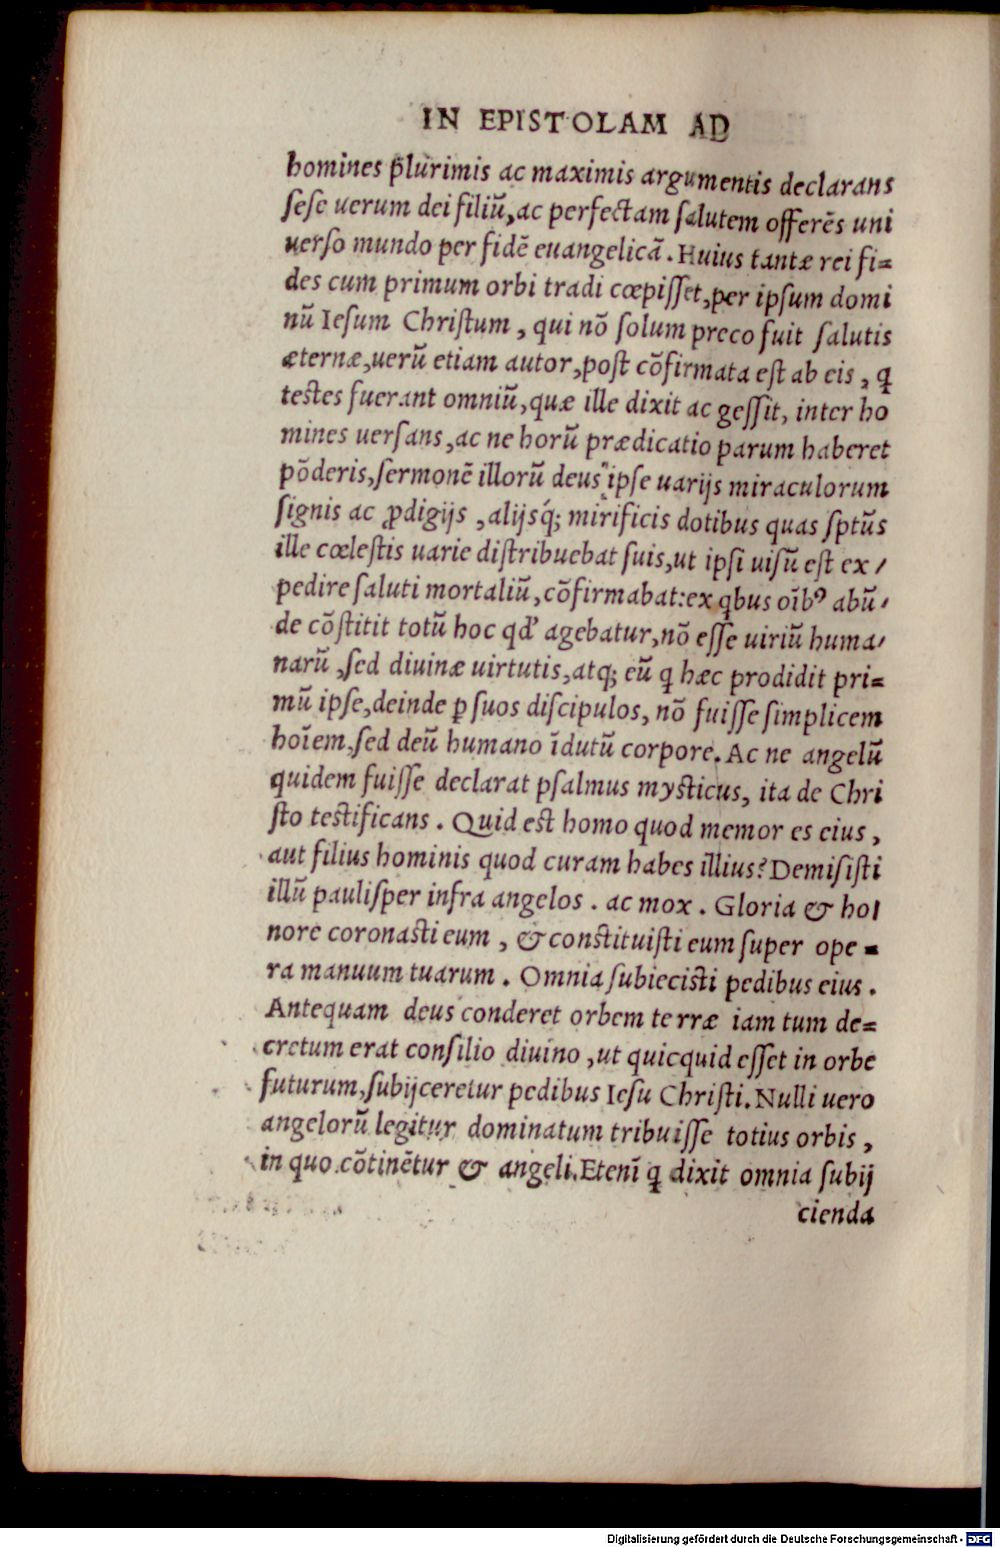 IN EPISTOLAM AD
homines plurimis ac maximis argumentis declarans
ſeſe uerum dei filiū, ac perfectam ſalutem offerēs uni
uerſo mundo per fidē euangelicā. Huius tantæ rei fi=
des cum primum orbi tradi cœpiſſet, per ipſum domi
nū Ieſum Chriſtum, qui nō ſolum preco fuit ſalutis
æternæ, uerū etiam autor, poſt cōfirmata eſt ab eis, ꝗ
teſtes fuerant omniū, quæ ille dixit ac geſſit, inter ho
mines uerſans, ac ne horū prædicatio parum haberet
pōderis, ſermonē illorū deus ipſe uarijs miraculorum
ſignis ac ꝓdigijs, alijsq́; mirificis dotibus quas ſpūs
ille cœleſtis uarie diſtribuebat ſuis, ut ipſi uiſū eſt ex/
pedire ſaluti mortaliū, cōfirmabat: ex ꝗbus oībꝰ abū/
de cōſtitit totū hoc qd' agebatur, nō eſſe uiriū huma/
narū, ſed diuinæ uirtutis, atq; eū ꝗ hæc prodidit pri=
mū ipſe, deinde ꝑ ſuos diſcipulos, nō fuiſſe ſimplicem
hoīem, ſed deū humano īdutū corpore. Ac ne angelū
quidem fuiſſe declarat pſalmus myſticus, ita de Chri
ſto teſtificans. Quid eſt homo quod memor es eius,
aut filius hominis quod curam habes illius? Demiſiſti
illū pauliſper infra angelos. ac mox. Gloria & ho
nore coronaſti eum, & conſtituiſti eum ſuper ope=
ra manuum tuarum. Omnia ſubiecisti pedibus eius.
Antequam deus conderet orbem terræ iam tum de=
cretum erat conſilio diuino, ut quicquid eſſet in orbe
futurum, ſubijceretur pedibus Ieſu Chriſti. Nulli uero
angelorū legitur dominatum tribuiſſe totius orbis,
in quo cōtinētur & angeli. Etenī ꝗ dixit omnia ſubij
cienda
Digitalisierung gefördert durch die Deutsche Forschungsgemeinschaft - DFG